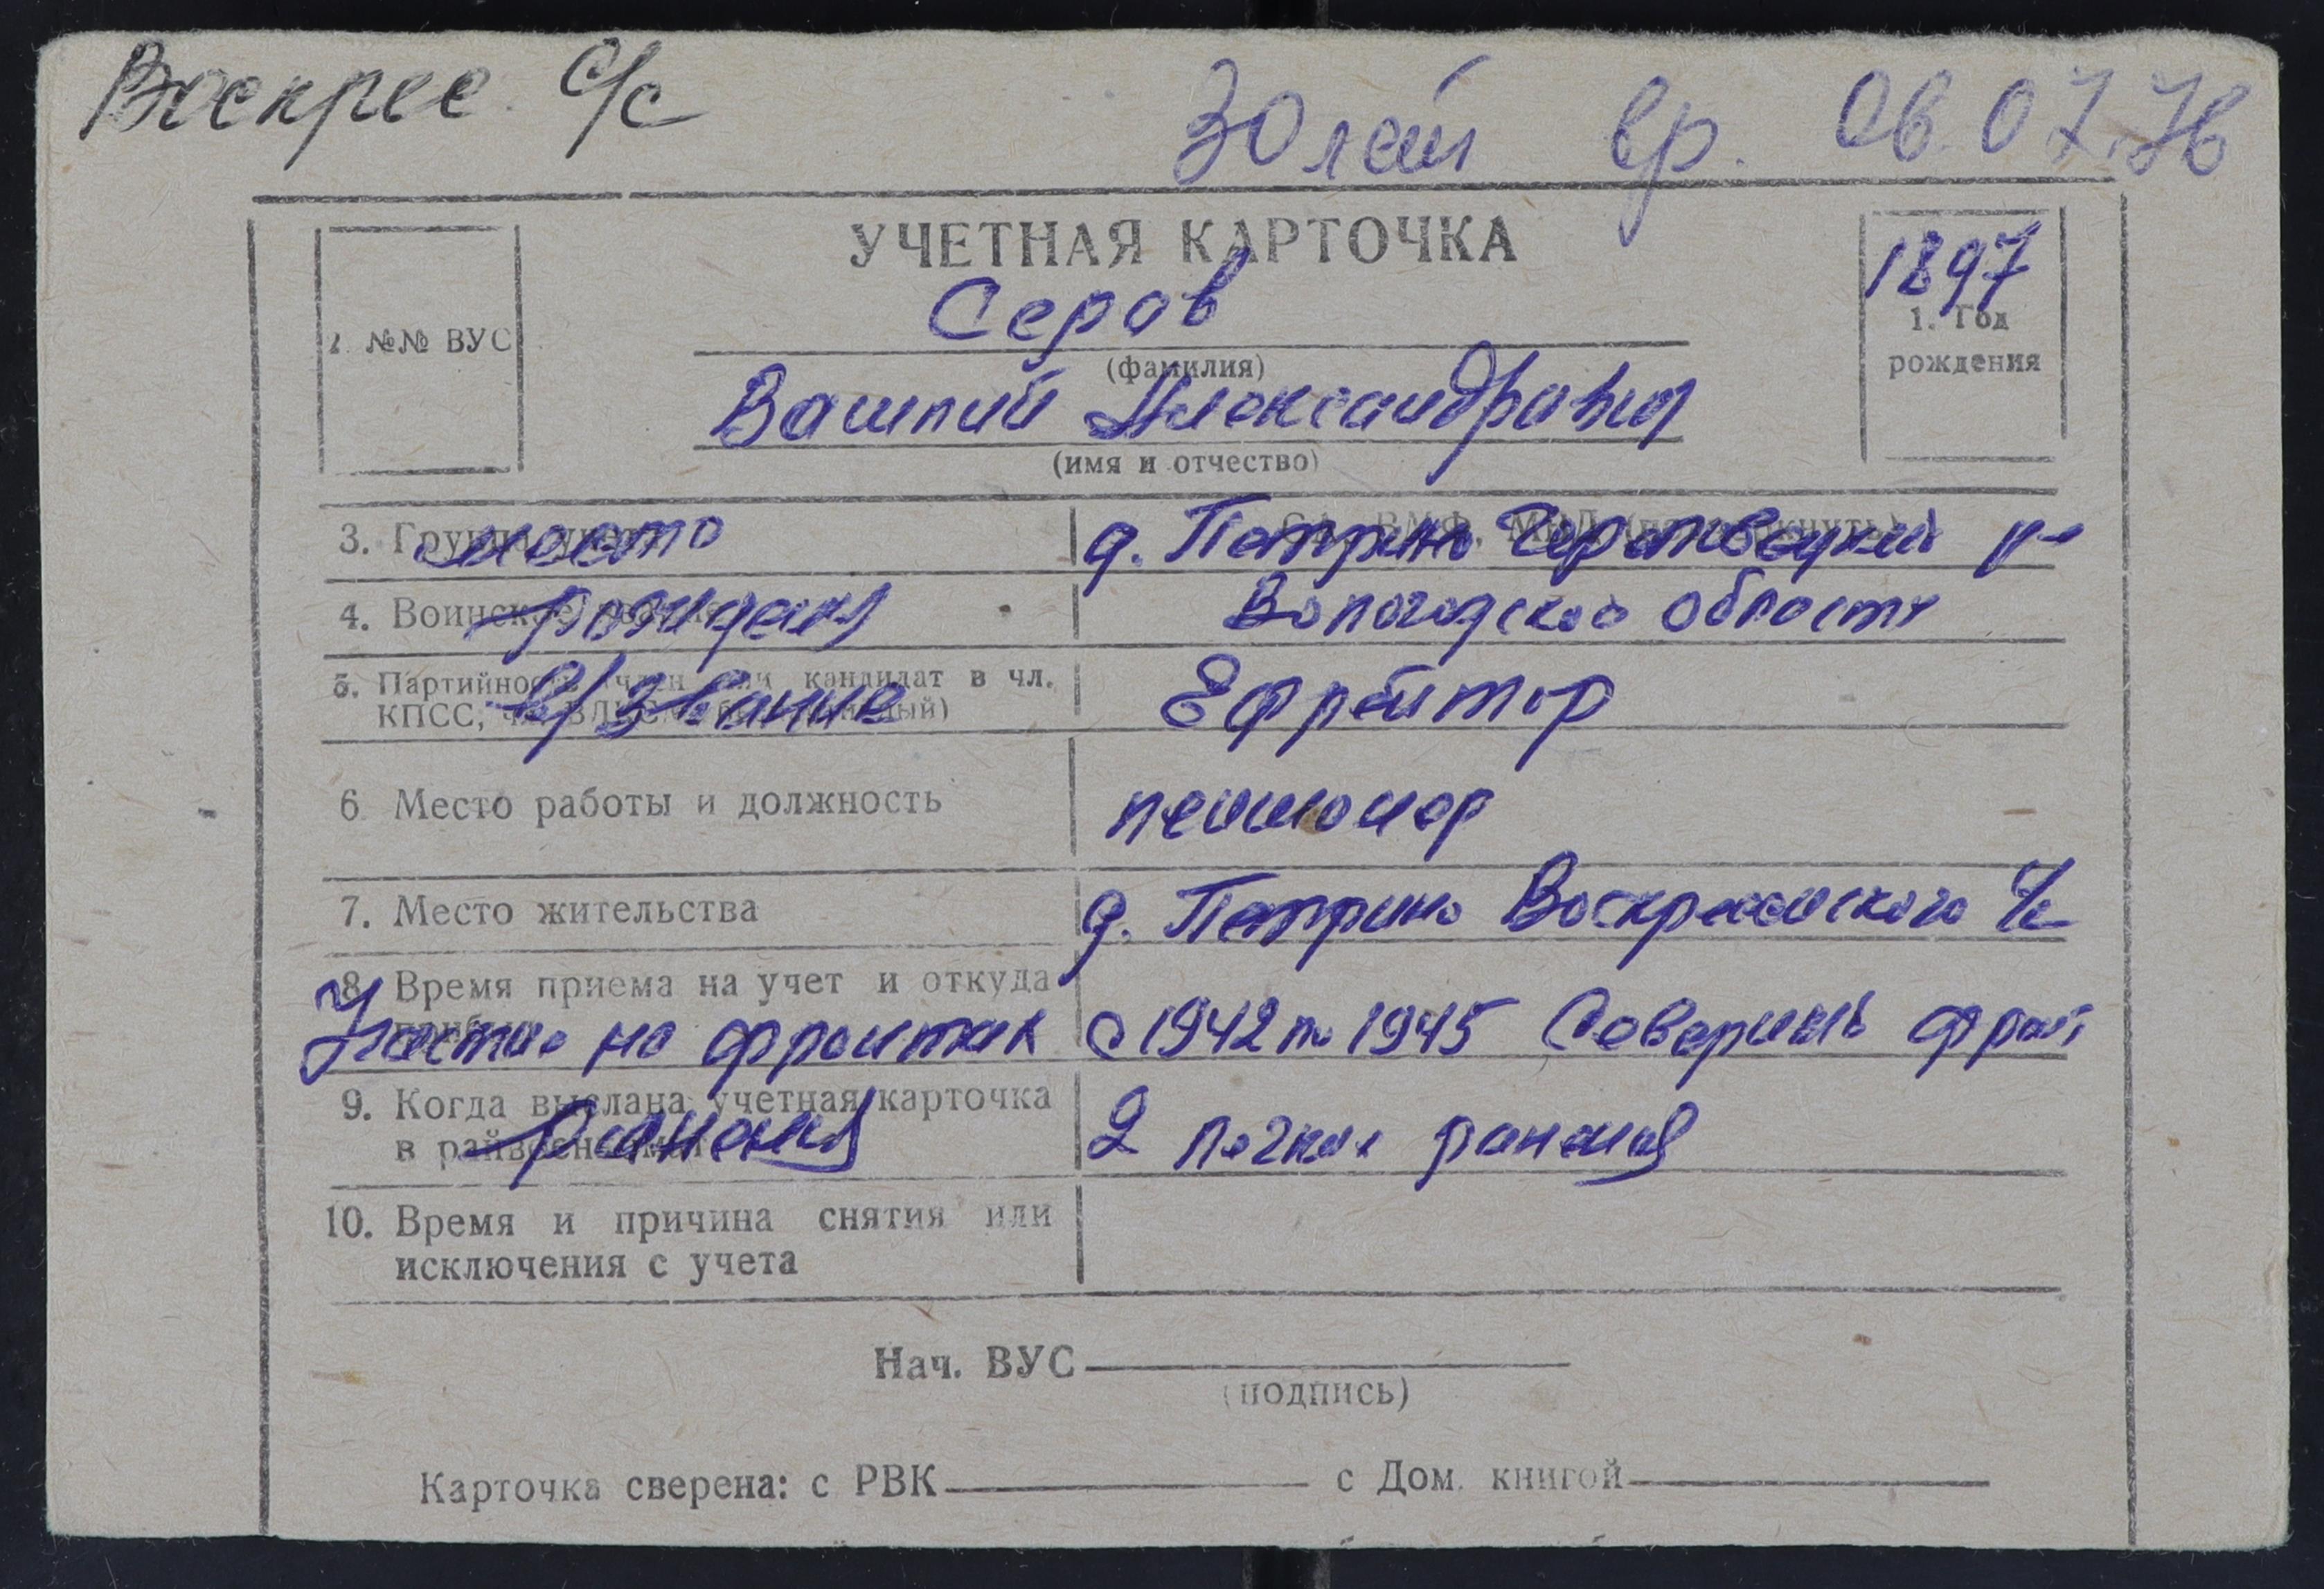 Воскрес. с/с
30 лет вр. 06.07.76
УЧЕТНАЯ КАРТОЧКА
1897
1. Год
рождения
2. №№ ВУС
Серов
(фамилия)
Василий Александрович
(имя и отчество)
3. место д. Петрино Череповецкий р-н
4. рождения Вологодской области
5. Партийность (член или кандидат в чл.
КПСС,
в/звание Ефрейтор
6. Место работы и должность пенсионер
7. Место жительства д. Петрино Воскресенского с/с
8. Время приема на учет и откуда
Участие на фронтах с 1942 по 1945 Северный фронт
9. Когда выслана учетная карточка
ранения 2 легких ранения
10. Время и причина снятия или
исключения с учета
Нач. ВУС
(подпись)
Карточка сверена: с РВК с Дом. книгой